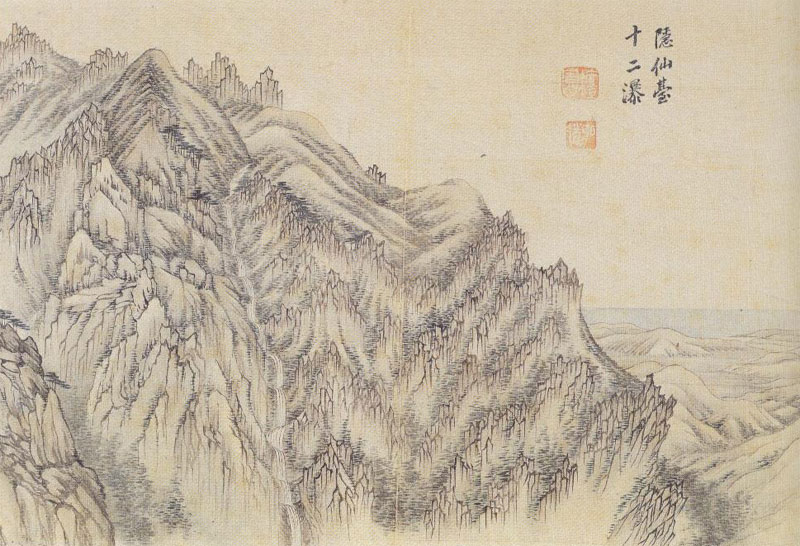 隱仙臺
十二瀑